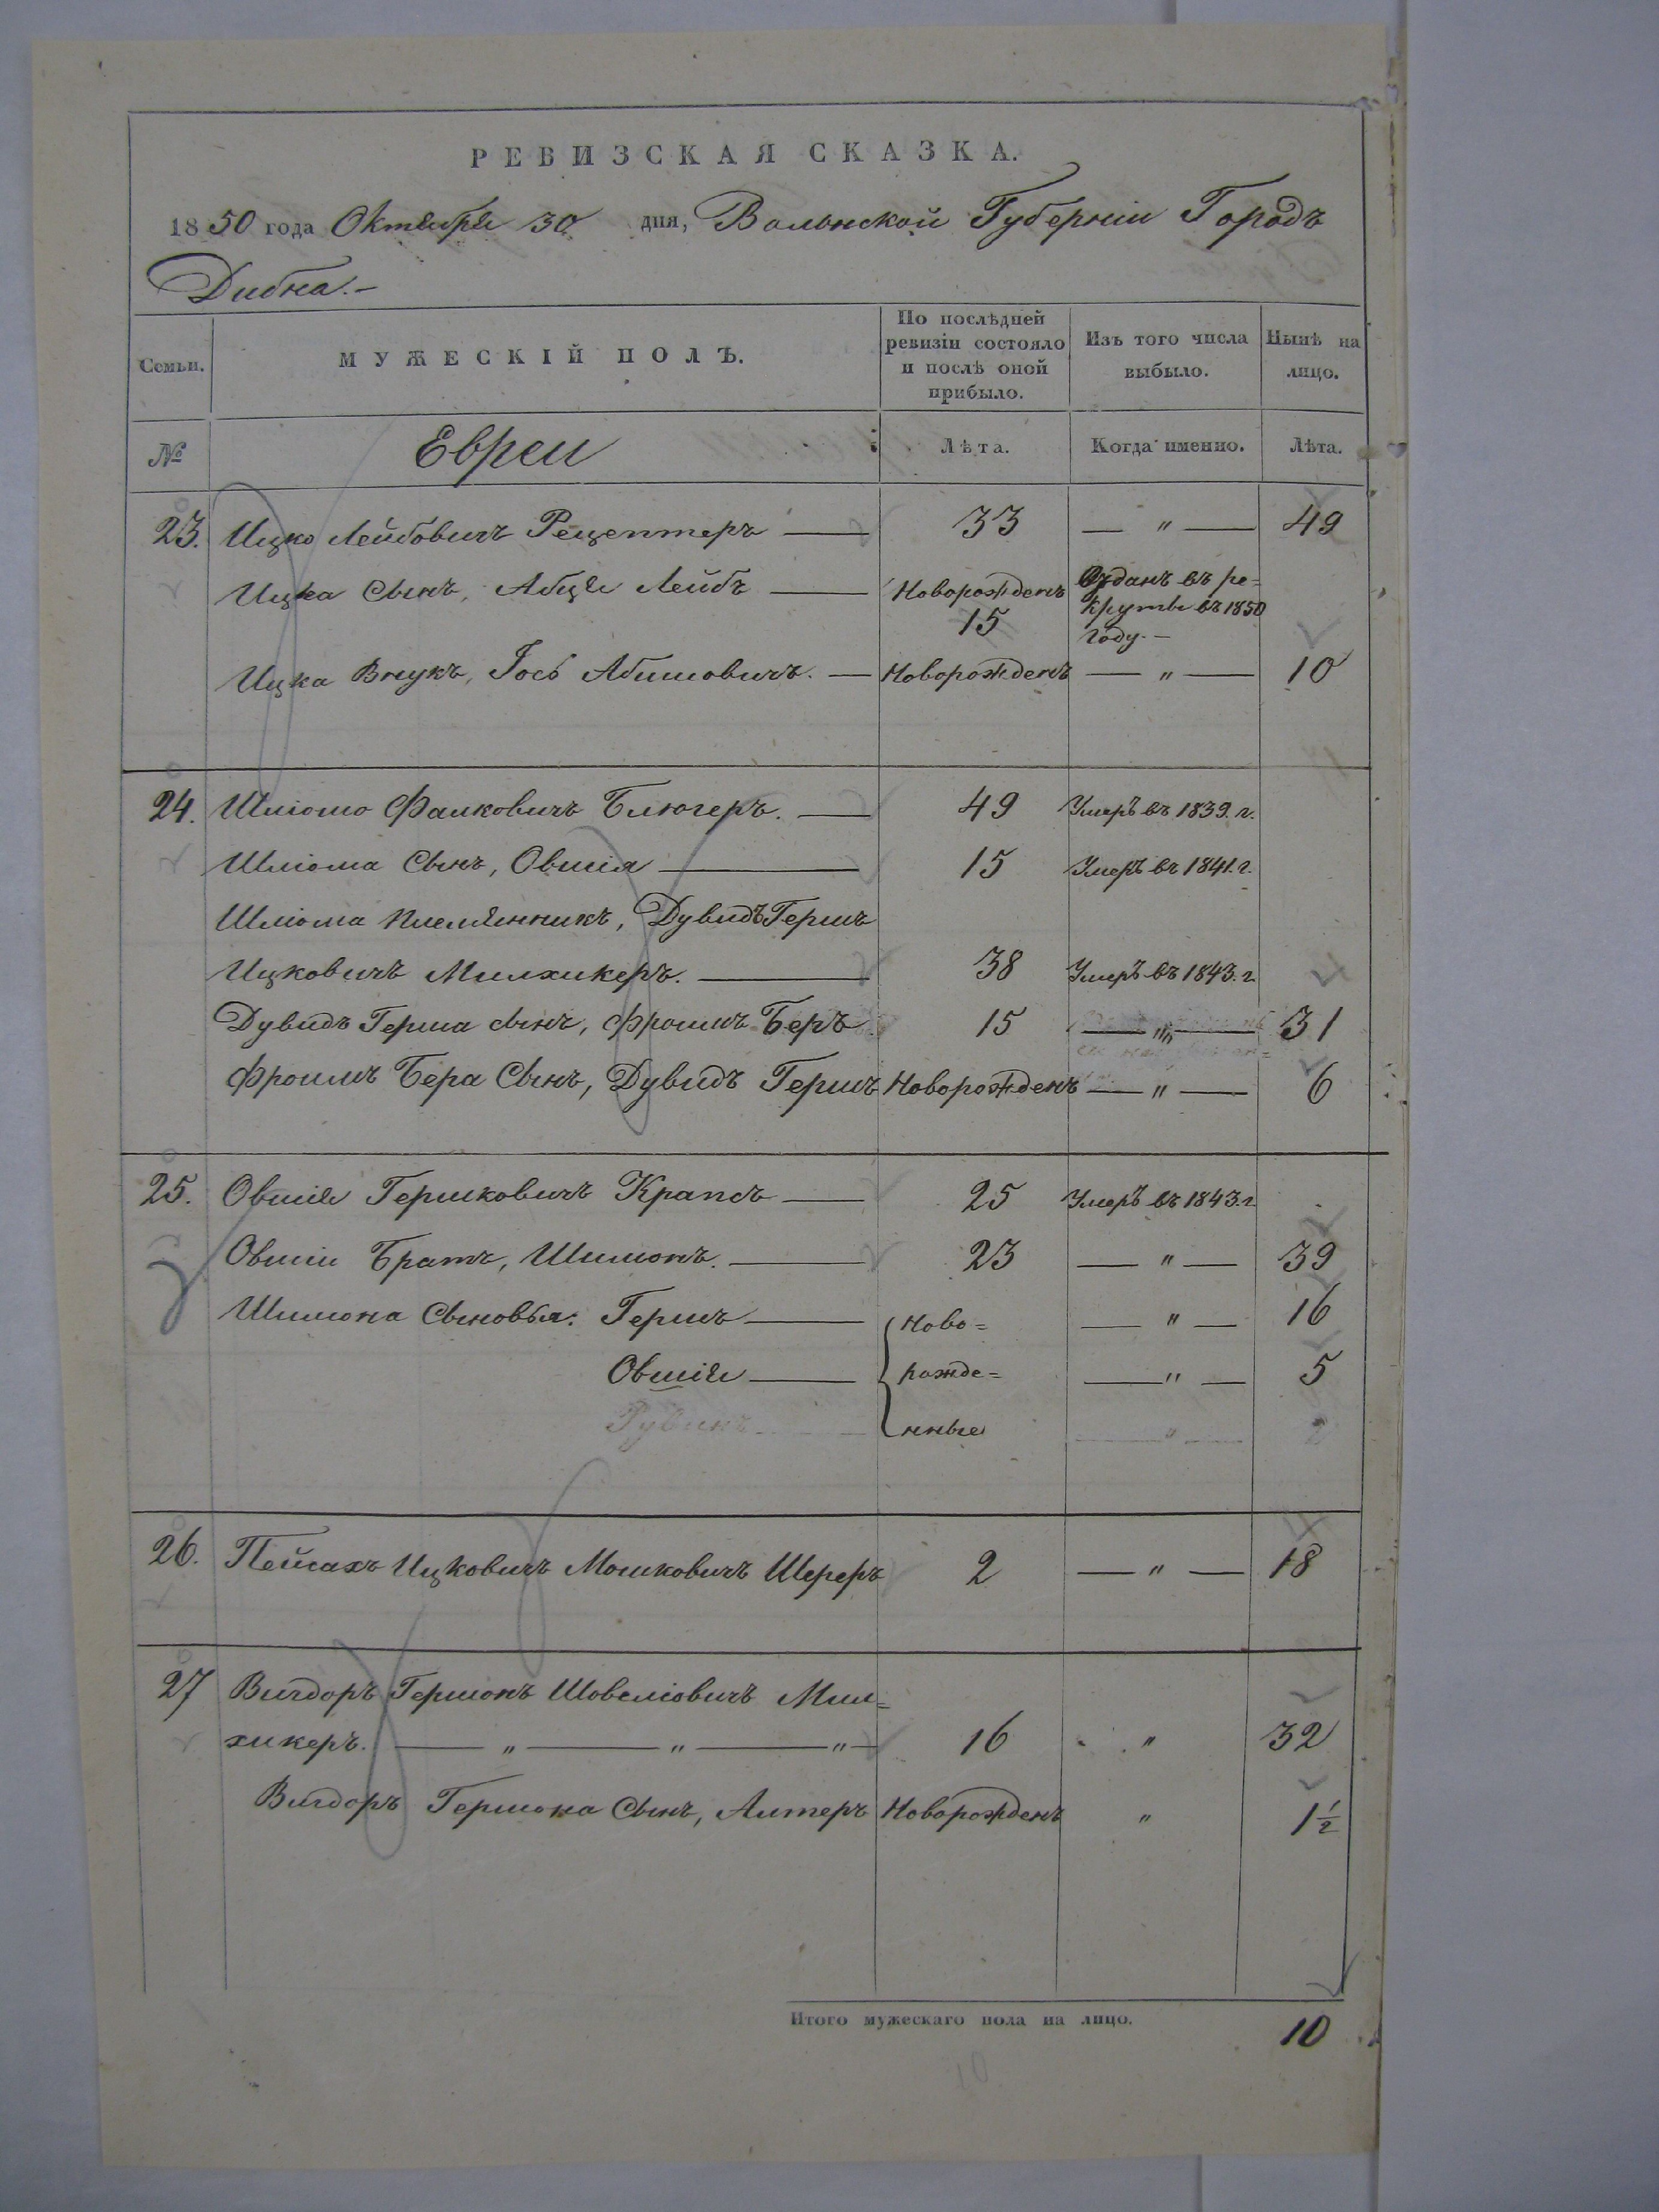 РЕВИЗСКАЯ СКАЗКА.
1850 года Октября 30 дня, Волынской Губерніи Городъ
Дубна.-
Семьи.
МУЖЕСКІЙ ПОЛЪ.
По послѣдней
ревизіи состояло
и послѣ оной
прибыло.
Изъ того числа
выбыло.
Нынѣ на
лицо.
№ Евреи Лѣта. Когда именно. Лѣта.
23. Ицко Лейбовичъ Рецептеръ — 33 — " — 49
Ицка Сынъ, Абця Лейбъ — Новорожденъ 15 Отданъ въ ре=
круты въ 1850
году.-
Ицка Внукъ, Іось Абишовичъ. — Новорожденъ — " — 10
24. Шліомо Фалковичъ Блюгеръ. — 49 Умеръ въ 1839. г.
Шліома Сынъ, Овшія — 15 Умеръ въ 1841. г.
Шліома племянникъ, Дувидъ Гершъ
Ицковичъ Милхикеръ. — 38 Умеръ въ 1843. г.
Дувидъ Герша сынъ, Фроимъ Беръ 15 — " — 31
Фроимъ Бера Сынъ, Дувидъ Гершъ Новорожденъ — " — 6
25. Овшія Гершковичъ Крапсъ — 25 Умеръ въ 1843. г.
Овшіи Братъ, Шимонъ. — 23 — " — 39
Шимона Сыновья: Гершъ — Ново= — " — 16
Овшія — рожде= — " — 5
Рувинъ — нные — " — 2
26. Пейсахъ Ицковичъ Мошковичъ Шереръ 2 — " — 18
27 Вигдоръ Гершонъ Шовеліовичъ Мил=
хикеръ. — " — " — " — 16 " 32
Вигдоръ Гершона Сынъ, Алтеръ Новорожденъ " 1½
Итого мужескаго пола на лицо. 10